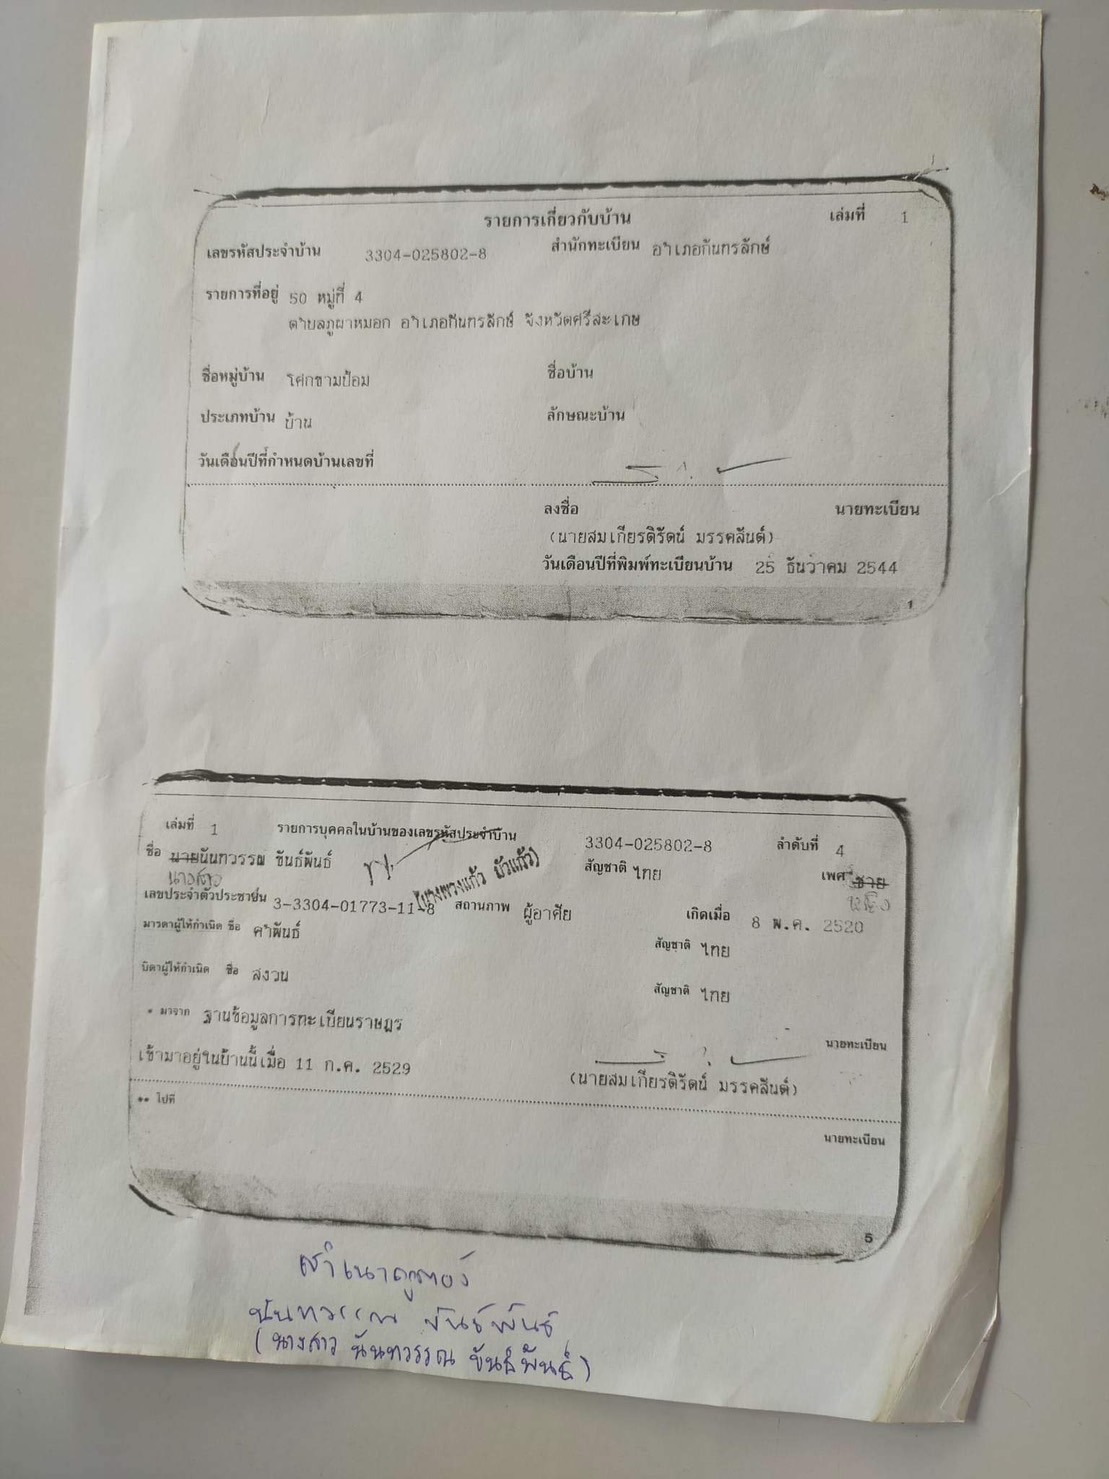 รายการเกี่ยวกับบ้าน เล่มที่ 1
เลขรหัสประจำบ้าน 3304-025802-8 สำนักทะเบียน อำเภอกันทรลักษ์
รายการที่อยู่ 50 หมู่ที่ 4
ตำบลภูผาหมอก อำเภอกันทรลักษ์ จังหวัดศรีสะเกษ
ชื่อหมู่บ้าน โศกขามป้อม ชื่อบ้าน
ประเภทบ้าน บ้าน ลักษณะบ้าน
วันเดือนปีที่กำหนดบ้านเลขที่
ลงชื่อ นายทะเบียน
(นายสมเกียรติรัตน์ มรรคสันต์)
วันเดือนปีที่พิมพ์ทะเบียนบ้าน 25 ธันวาคม 2544
1
เล่มที่ 1 รายการบุคคลในบ้านของเลขรหัสประจำบ้าน 3304-025802-8 ลำดับที่ 4
ชื่อ นายนันทวรรณ ขันธ์พันธ์ สัญชาติ ไทย เพศ ชาย
นางสาว (นางพวงแก้ว บัวแก้ว) หญิง
เลขประจำตัวประชาชน 3-3304-01773-11-8 สถานภาพ ผู้อาศัย เกิดเมื่อ 8 พ.ค. 2520
มารดาผู้ให้กำเนิด ชื่อ คำพันธ์ สัญชาติ ไทย
บิดาผู้ให้กำเนิด ชื่อ สงวน สัญชาติ ไทย
* มาจาก ฐานข้อมูลการทะเบียนราษฎร
นายทะเบียน
เข้ามาอยู่ในบ้านนี้เมื่อ 11 ก.ค. 2529 (นายสมเกียรติรัตน์ มรรคสันต์)
** ไปที่
นายทะเบียน
5
สำเนาถูกต้อง
นันทวรรณ ขันธ์พันธ์
(นางสาว นันทวรรณ ขันธ์พันธ์)